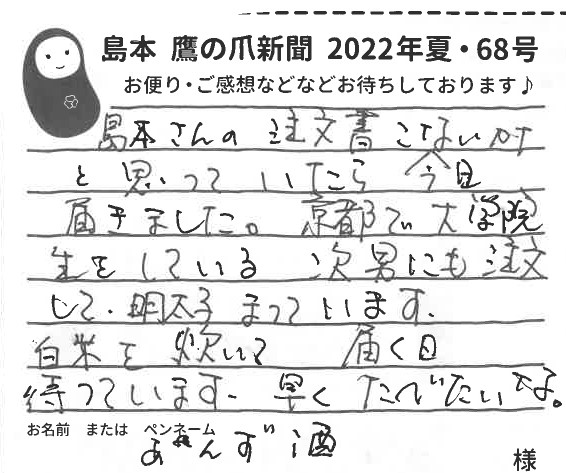 島本 鷹の爪新聞 2022年夏・68号
お便り・ご感想などなどお待ちしております♪
島本さんの 注文書 こないかナ
と 思いって いたら 今日
届きました。 京都で 大学院
生を している 次男にも 注文
して、明太子 まっています。
白米を 炊いて 届く日
待っています、早く たべたいな。
お名前 または ペンネーム
あんず酒
様